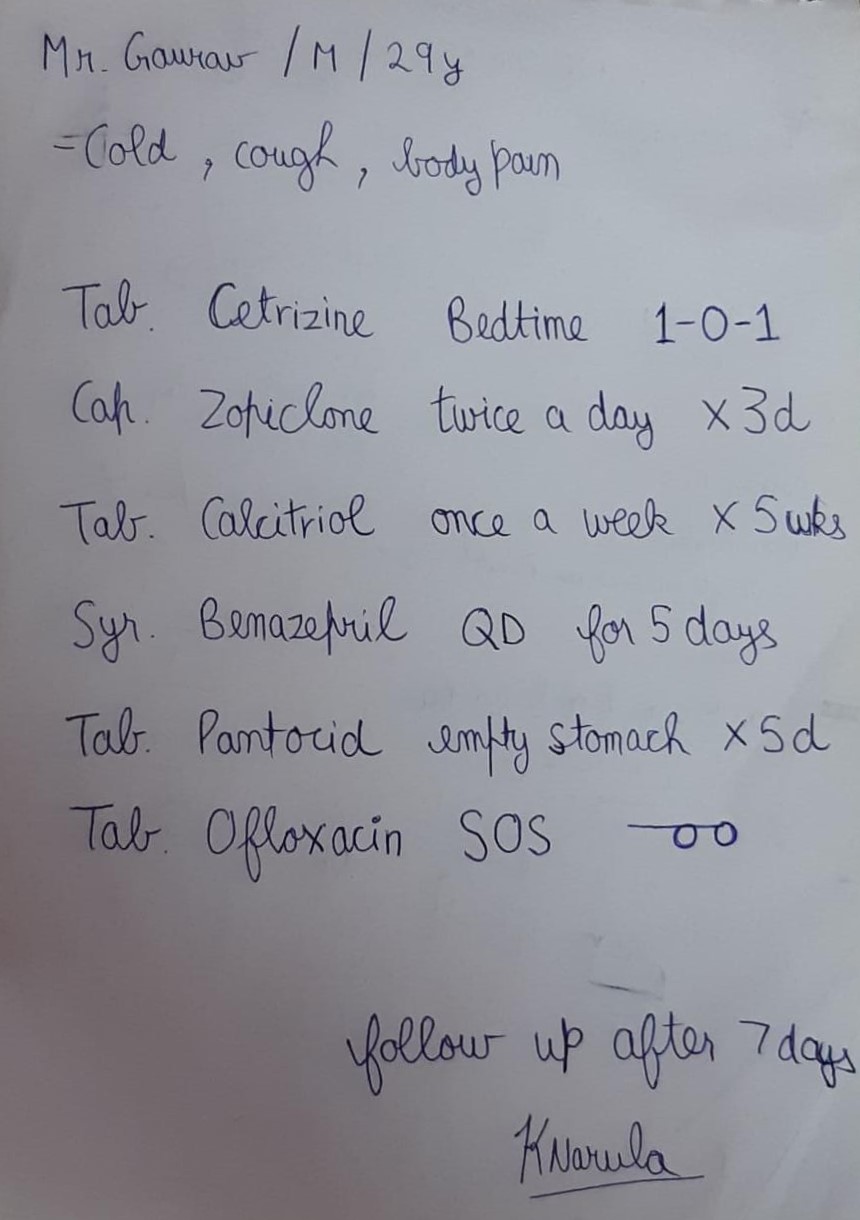 Mr. Gaurav / M / 29y
- Cold , cough , body pain
Tab. Cetrizine Bedtime 1-0-1
Cap. Zopiclone twice a day x 3d
Tab. Calcitriol once a week x 5 wks
Syr. Benazepril QD for 5 days
Tab. Pantocid empty stomach x 5d
Tab. Ofloxacin SOS —oo
follow up after 7 days
KNarula